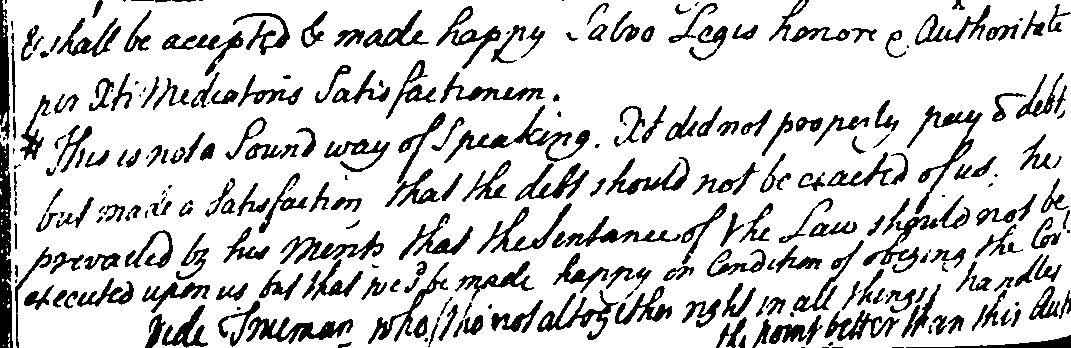 & shall be accepted & made happy Salvo Legis honore & Authoritate
per Xti Mediatoris Satisfactionem.
# This is not a Sound way of Speaking. Xt did not properly pay debt,
but made a Satisfaction that the debt should not be exacted of us. he
prevailed by his Merits that the Sentance of the Law should not be
executed upon us but that we'd be made happy on Condition of obeying the Gos
Vide Trueman who (tho not altogether right in all things) handles
the point better than this Auth